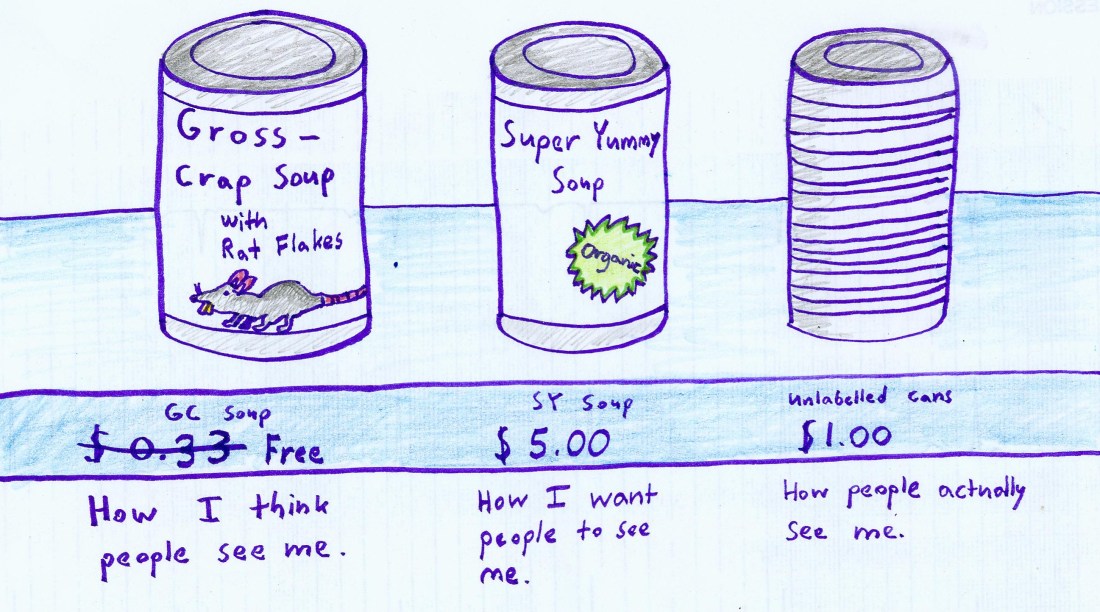 Gross-
Crap Soup
with
Rat Flakes
Super Yummy
Soup
Organic
GC Soup
$0.33 Free
SY Soup
$5.00
Unlabelled cans
$1.00
How I think
people see me.
How I want
people to see
me.
How people actually
see me.